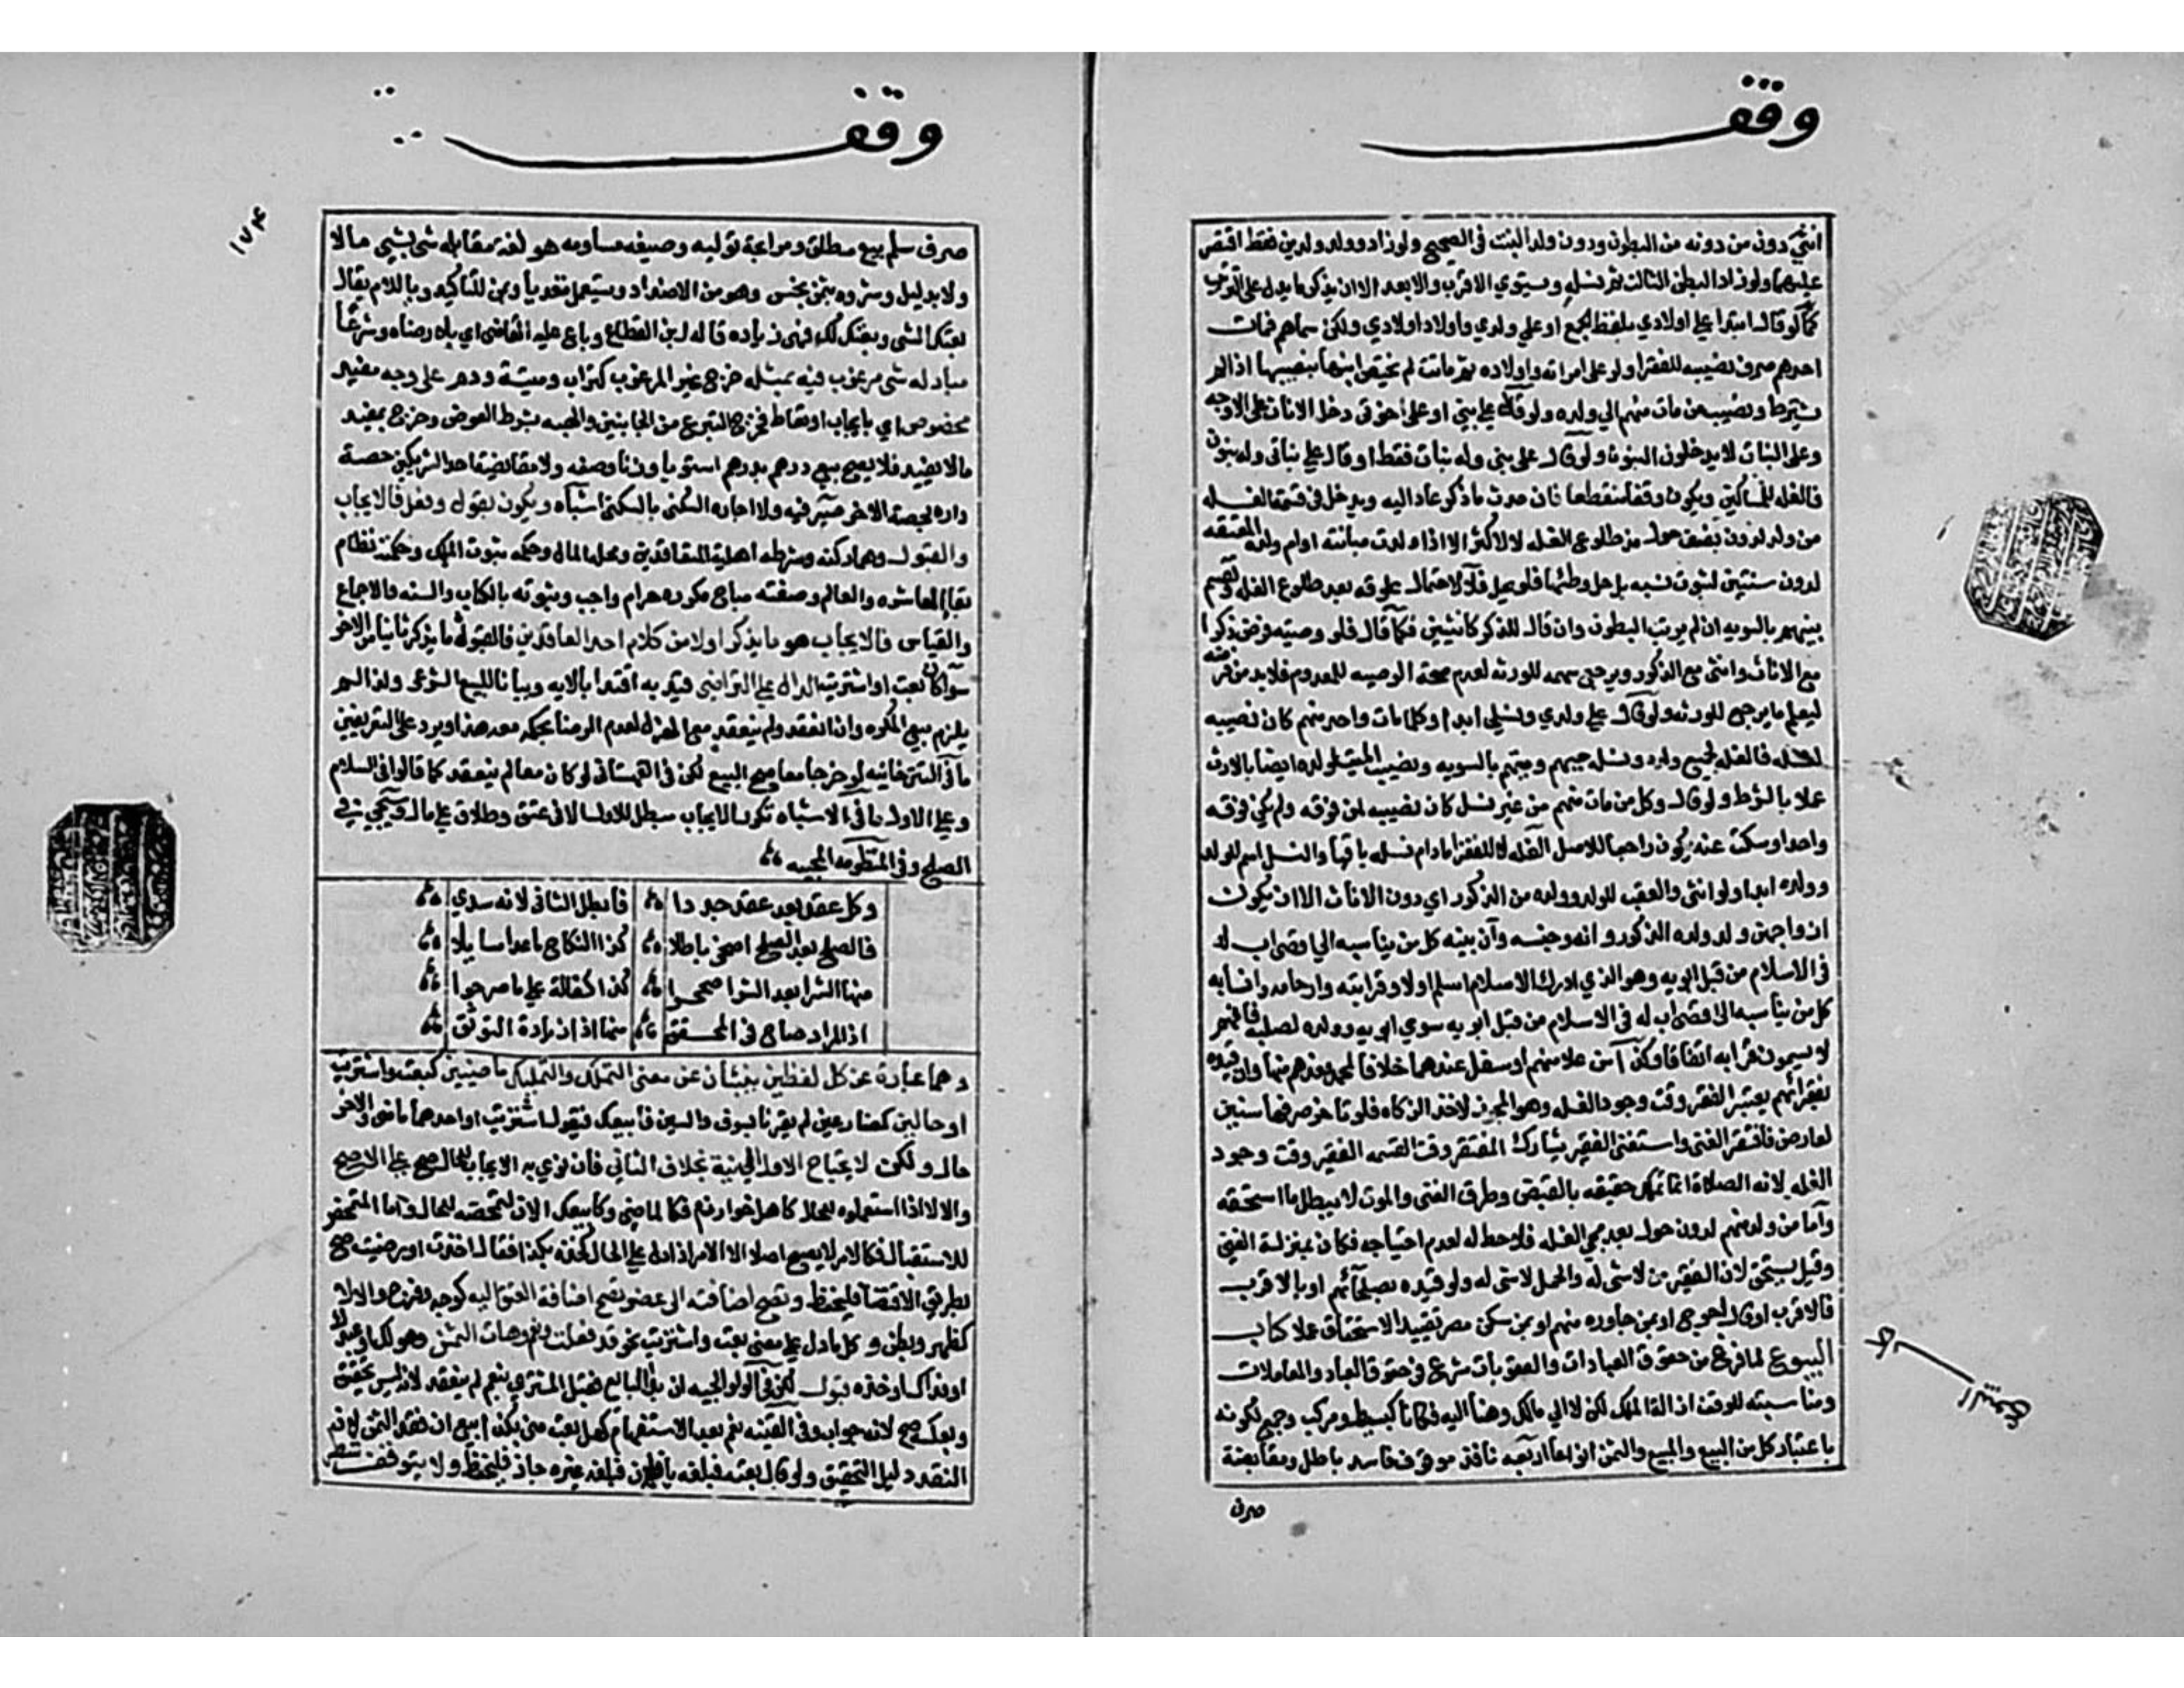 وقف
انثى دون من دونه من البطون ودون ولد البنت في الصحيح ولو زاد وولد ولدي فقط اقتصر
عليهما ولو زاد البطن الثالث عم نسله ويستوي الاقرب والابعد الا ان يذكر ما يدل على الترتيب
كما لو قال ابتدا على اولادي بلفظ الجمع او على ولدي واولاد اولادي ولكن سماهم فمات
احدهم صرف نصيبه للفقرا ولو على امراته واولاده ثم ماتت لم يختص ابنها بنصيبها اذا لم
يشترط ونصيب من مات منهم الي ولده ولو قال على بني او على اخوتي دخل الاناث على الاوجه
وعلى البنات لا يدخلون البنون ولو قال على بني وله بنات فقط او قال على بناتي وله بنون
فالغله للمساكين ويكون وقفا منقطعا فان حدث ما ذكر عاد اليه ويدخل في قسمة الغله
من ولد لدون نصف حول مذ طلوع الغله لا لاكثر الا اذا ولدت مبانته او ام ولده المعتقه
لدون سنتين لثبوت نسبه بلا حل وطئها فلو يحل فلا لاحتمال علوقه بعد طلوع الغله وتقسم
بينهم بالسويه ان لم يرتب البطون وان قال للذكر كانثيين فكما قال فلو وصيته فرض ذكرا
مع الاناث وانثى مع الذكور ويرجع سهمه للورثه لعدم صحة الوصيه للمعدوم فلا بد من فرضه
ليعلم ما يرجع للورثه ولو قال على ولدي ونسلي ابدا وكلما مات واحد منهم كان نصيبه
لنسله فالغله لجميع ولده ونسله حيهم وميتهم بالسويه ونصيب الميت لولده ايضا بالارث
عملا بالشرط ولو قال وكل من مات منهم من غير نسل كان نصيبه لمن فوقه ولم يكن فوقه
واحد او سكت عنه يكون راجعا لاصل الغله لا للفقرا ما دام نسله باقيا والنسل اسم للولد
وولده ابدا ولو انثى والعقب للولد وولده من الذكور اي دون الاناث الا ان يكون
ازواجهن ولد ولده الذكور واله وجنسه وآل بيته كل من يناسبه الي اقصى اب له
في الاسلام من قبل ابويه وهو الذي ادرك الاسلام اسلم اولا وقرابته وارحامه وانسابه
كل من يناسبه الى اقصى اب له في الاسلام من قبل ابويه سوي ابويه وولده لصلبه فانهم
لا يسمون قرابه اتفاقا وكذا من علا منهم او سفل عندهما خلافا لمحمد فعدهم منها وان قيده
بفقرائهم يعتبر الفقر وقت وجود الغله وهو المجوز لاخذ الزكاه فلو تاخر صرفها سنين
لعارض فافتقر الغني واستغنى الفقير شارك المفتقر وقت القسمه الفقير وقت وجود
الغله لانه الصلاة انما تملك حقيقه بالقبض وطرو الغنى والموت لا يبطل ما استحقه
واما من ولد منهم لدون حول بعد مجي الغله فلا حظ له لعدم احتياجه فكان بمنزلة الغني
وقيل يستحق لان الفقير من لا شي له والحمل لا شي له ولو قيده بصلحائهم او بالاقرب
فالاقرب او فالاحوج او بمن جاوره منهم او بمن سكن مصر تقييد الاستحقاق عملا كتاب
البيوع لما فرغ من حقوق العبادات والعقوبات شرع في حقوق العباد والمعاملات
ومناسبته للوقف ازالة الملك لكن لا الي مالك وهنا اليه فكانا كبسيط ومركب وجمع لكونه
باعتبار كل من البيع والمبيع والثمن انواعا اربعه نافذ موقوف فاسد باطل ومقايضة
صرف
وقف
١٧٤
صرف سلم بيع مطلق ومرابحة توليه وضيعه مساومه هو لغة مقابله شي بشي مالا
ولا بدليل وشروه بثمن بخس وهو من الاضداد ويستعمل متعديا وبمن للتاكيد وباللام يقال
بعتك الشي وبعتك لك فهي زياده قاله ابن القطاع وباع عليه القاضي اي بلا رضاه وشرعا
مبادله شي مرغوب فيه بمثله خرج غير المرغوب كتراب وميتة ودم على وجه مفيد
مخصوص اي بايجاب او تعاط فخرج التبرع من الجانبين والهبه بشرط العوض وخرج بمفيد
ما لا يفيد فلا يصح بيع درهم بدرهم استويا وزنا وصفه ولا مقايضة احد الشريكين حصة
داره بحصة الاخر صيرفيه ولا اجاره السكنى بالسكنى اشباه ويكون بقول وفعل فالايجاب
والقبول وهما ركنه وشرطه اهلية المتعاقدين ومحله المال وحكمه ثبوت الملك وحكمته نظام
بقا المعاش والعالم وصفته مباح مكروه حرام واجب وثبوته بالكتاب والسنه والاجماع
والقياس فالايجاب هو ما يذكر اولا من كلام احد العاقدين فالقبول ما يذكر ثانيا من الاخر
سوا كان بعت او اشتريت الدال على التراضي قيد به اقتدا بالايه وبيانا للبيع الشرعي ولذا لم
يلزم بيع المكره وان انعقد ولم ينعقد مع الهزل لعدم الرضا بحكمه معه هذا ويرد على التعريفين
ما في التتارخانيه لو خرجا معا صح البيع لكن في القهستاني لو كان معا لم ينعقد كما قالوا في السلام
وعلى الاول ما في الاشباه تكرار الايجاب مبطل للاول الا في عتق وطلاق على مال وسيجي في
الصلح وفي المنظومه المحبيه
وكل عقد بعد عقد جددا فابطل الثاني لانه سدي
فالصلح بعد الصلح اضحى باطلا كذا النكاح ما عدا مسايلا
منها الشرا بعد الشرا صححوا كذا كفالة على ما صرحوا
اذ المراد صاح في المحقق منها اذا زيادة التوثق
وهما عبارة عن كل لفظين ينبئان عن معنى التملك والتمليك ماضيين كبعت واشتريت
او حالين كمضارعين لم يقرنا بسوف والسين فابيعك فيقول اشتريت او احدهما ماض والاخر
حال ولكن لا يحتاج الاول الي نية بخلاف الثاني فان نوي به الايجاب للحال صح على الاصح
والا لا الا اذا استعملوه للحال كاهل خوارزم فكالماضي وكابيعك الان لتمحضه للحال واما المتمحض
للاستقبال فكالامر لا يصح اصلا الا الامر اذا دل على الحال كخذه بكذا فقال اخذت او رضيت صح
بطريق الاقتضا فليحفظ وتصح اضافته الى عضو تصح اضافة العتق اليه كوجه وفرج والا لا
كظهر وبطن وكل ما دل على معنى بعت واشتريت نحو قد فعلت ونعم وهات الثمن وهو لك او عبدك
او فداك او خذه قبول لكن في الولوالجيه ان بدا البايع فقبل المشتري بنعم لم ينعقد لانه ليس بتحقيق
وبعكسه صح لانه جواب وفي القنيه نعم بعد الاستفهام كهل بعت مني بكذا بيع ان نقد الثمن لان
النقد دليل التحقيق ولو قال بعته فبلغه يا فلان فبلغه غيره جاز فليحفظ ولا يتوقف شطر